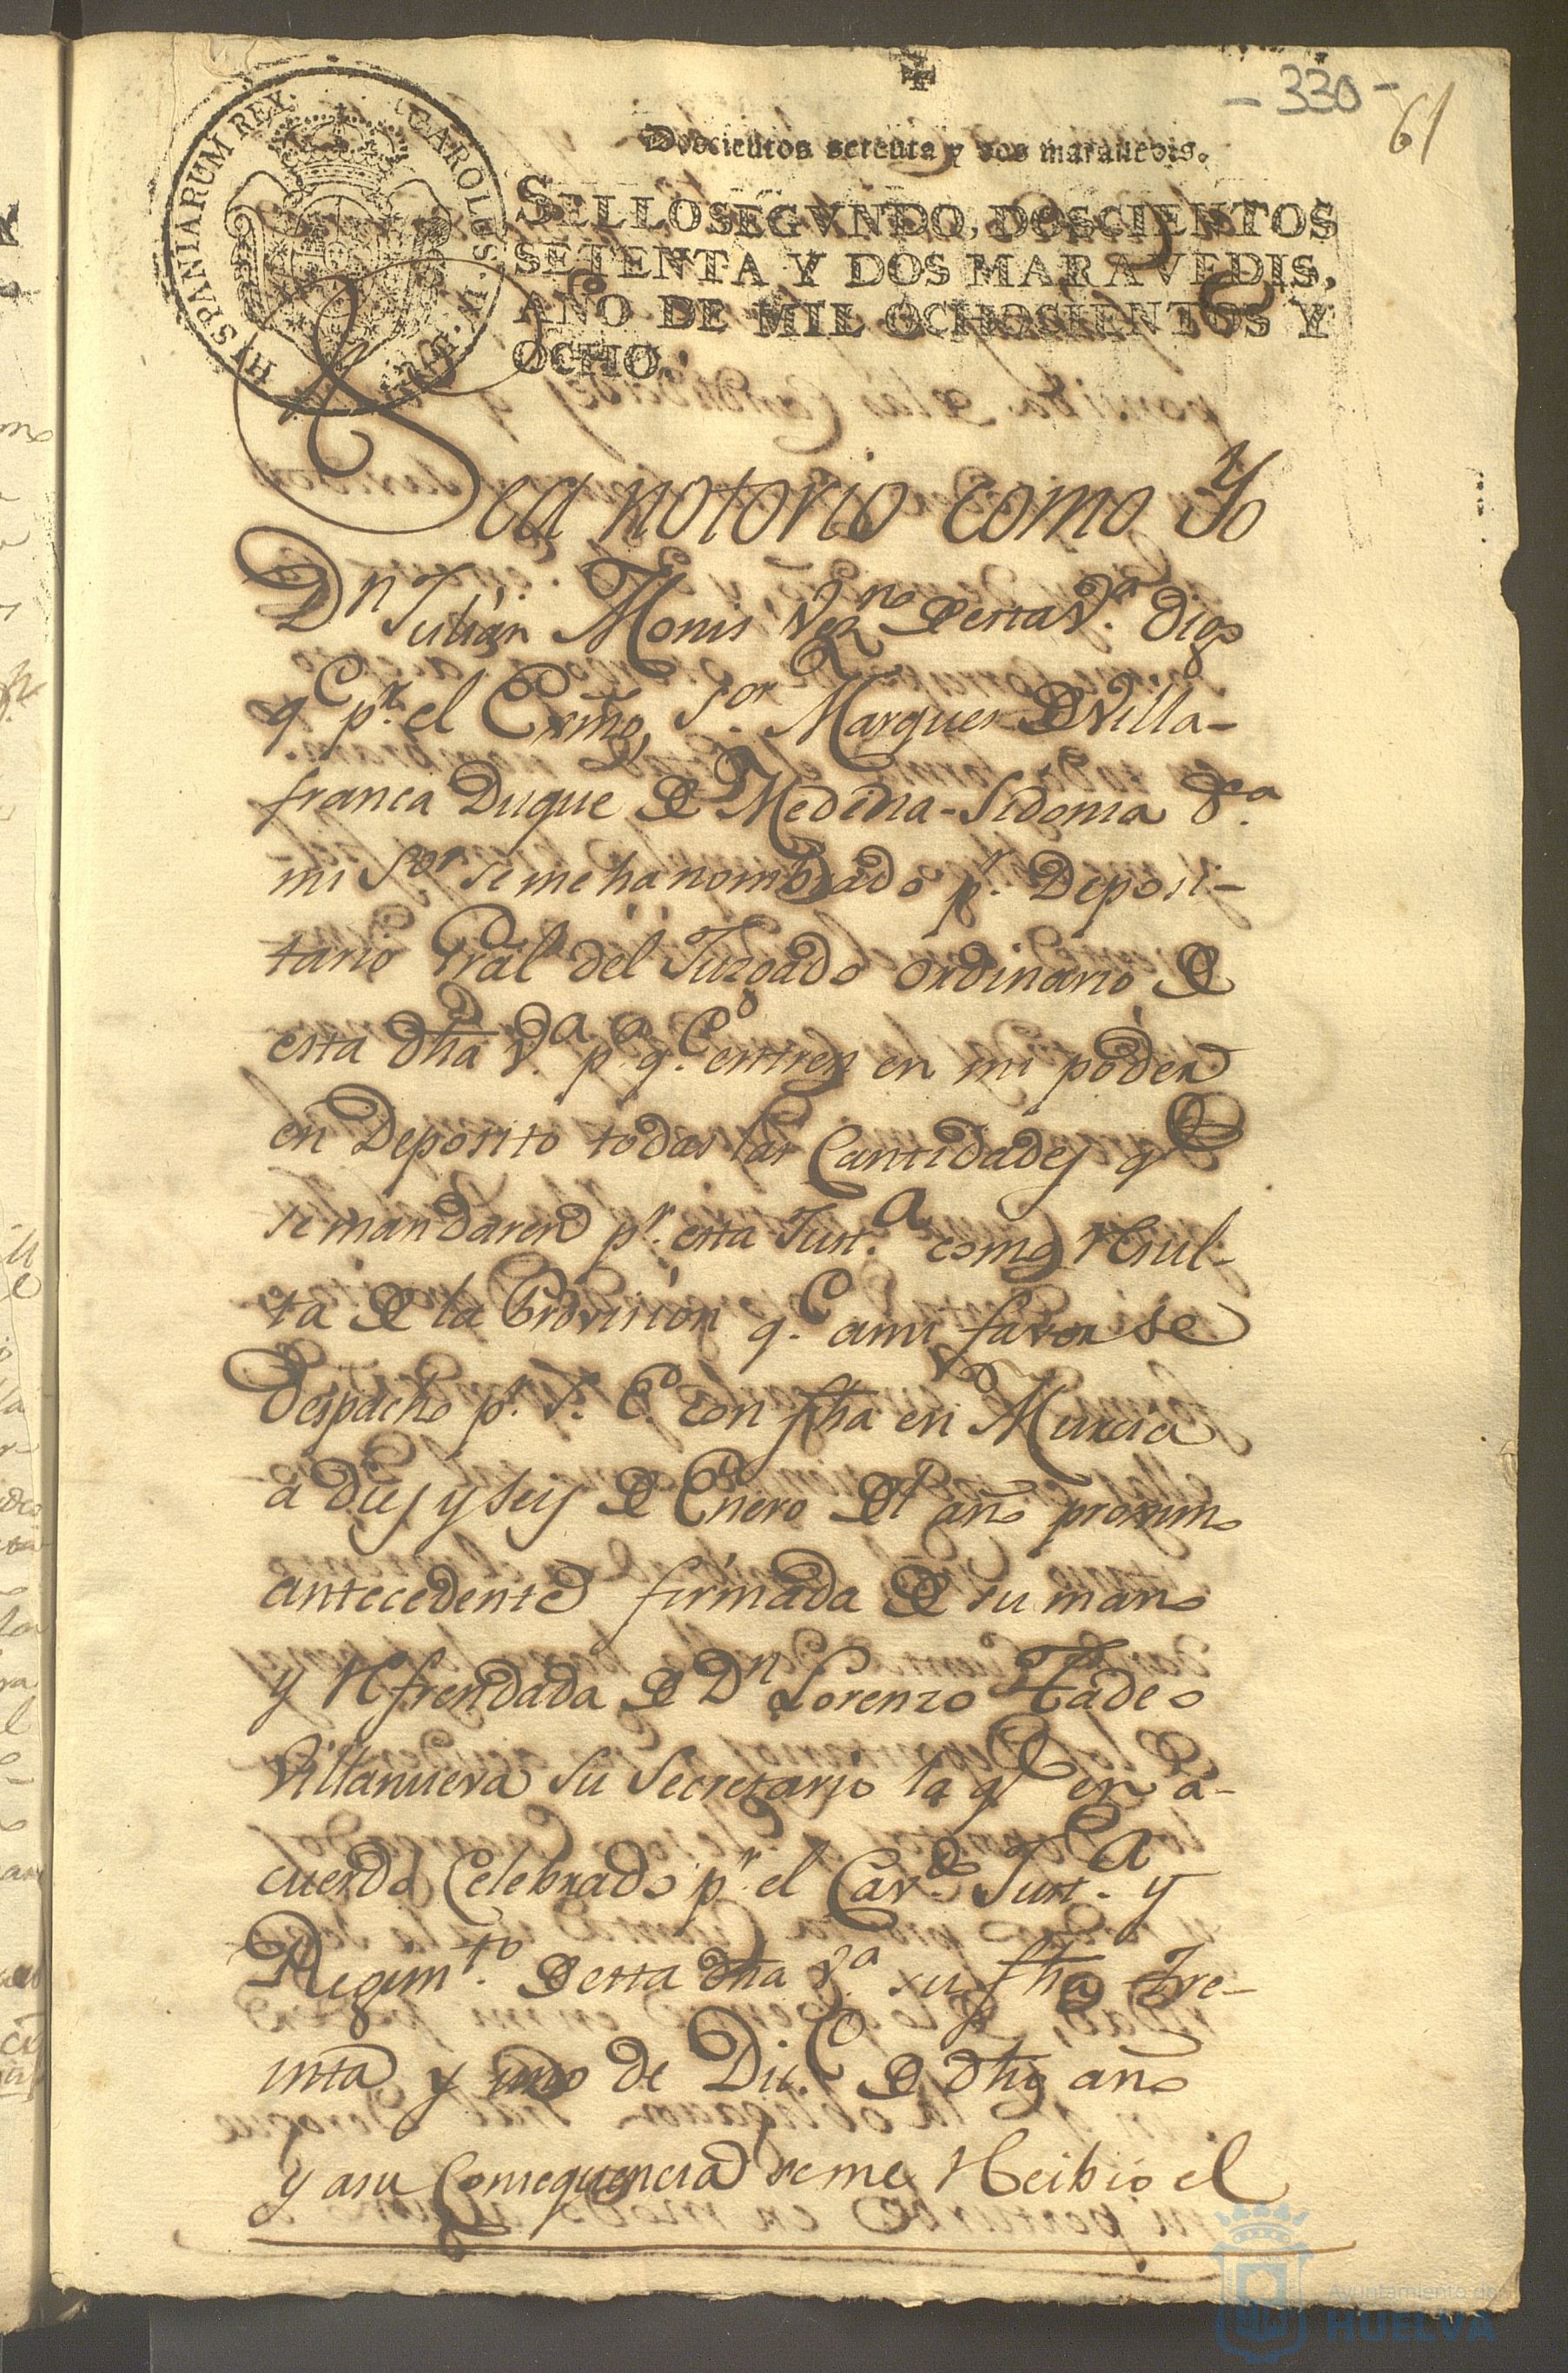 - 330 -
61
Doscientos setenta y dos maravedis.
HYSPANIARUM REX. CAROLUS. IV. D. G.
SELLO SEGVNDO, DOSCIENTOS
SETENTA Y DOS MARAVEDIS,
AÑO DE MIL OCHOSIENTOS Y
OCHO.
Sea notorio como Yo
Dn Julián Monis Vezno de esta Va. digo
qe pr. el Exmo, Sor. Marques de Villa-
franca Duque de Medina-Sidonia &a.
mi Sor se me ha nombrado pr. Deposi-
tario Gral del Juzgado ordinario de
esta dha Va. pa qe. entren en mi poder
en Deposito todas las Cantidades qe
se mandaren pr. esta Justa. como resul-
ta de la Provision qe. a mi favor se
despacho pr. S. Eo. con fha en Murcia
a dies y seis de Enero del año proximo
antecedente firmada de su mano
y refrendada de Dn Lorenzo Tadeo
Villanueva su Secretario la qe en a-
cuerdo Celebrado pr el Cavdo. Justa. y
Regimto. de esta dha Va. su fha tre-
inta y uno de Dice. de dho año
y a su Consequencia se me recibio el
Ayuntamiento de
HUELVA